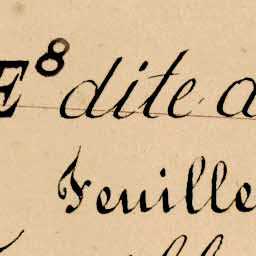 E⁸ dite d
Feuille